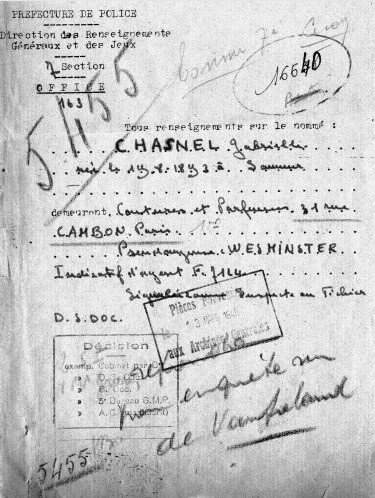 PREFECTURE DE POLICE
Direction des Renseignements
Généraux et des Jeux
7 Section
OFFICE
163
5455
comme
16640
Tous renseignements sur le nommé :
CHASNEL Gabrielle
née le 19.8.1893 à Saumur
demeurant Couture et Parfumeur 31 rue
CAMBON. Paris 1er
Pseudonyme : WESMINSTER
Indicatif d'agent F. 7124
Signalée comme suspecte au Fichier
D.S.DOC.
Pièces
aux Archives Centrales
Décision
exemp. Cabinet
D.
S. Doc.
5° Bureau S.M.P.
A.C.
enquête sur
de Vaufreland
5455